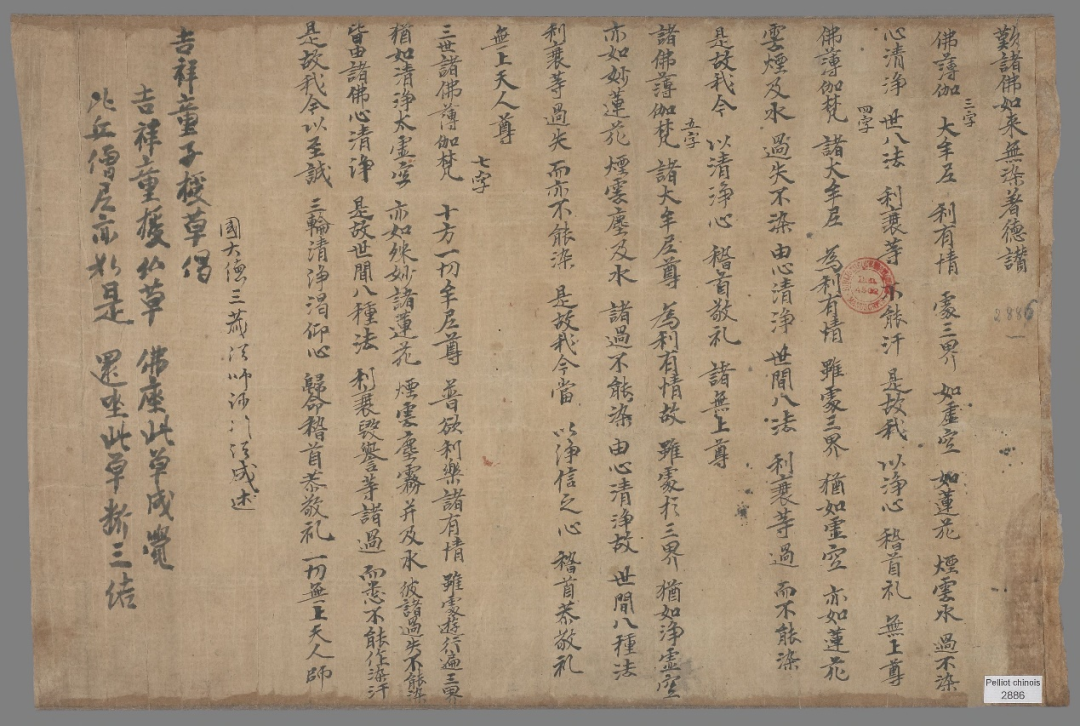 歎諸佛如來無染著德讃
三字
佛薄伽 大牟尼 利有情 處三界 如虚空 如蓮花 煙雲水 過不染
心清浄 世八法 利衰等 不能汙 是故我 以浄心 稽首礼 無上尊
四字
佛薄伽梵 諸大牟尼 為利有情 雖處三界 猶如虚空 亦如蓮花
雲煙及水 過失不染 由心清浄 世間八法 利衰等過 而不能染
是故我今 以清浄心 稽首敬礼 諸無上尊
五字
諸佛薄伽梵 諸大牟尼尊 為利有情故 雖處於三界 猶如浄虚空
亦如妙蓮花 煙雲塵及水 諸過不能染 由心清浄故 世間八種法
利衰等過失 而亦不能染 是故我今當 以浄信之心 稽首恭敬礼
無上天人尊
七字
三世諸佛薄伽梵 十方一切牟尼尊 普欲利樂諸有情 雖處遊行遍三界
猶如清浄太虚空 亦如殊妙諸蓮花 煙雲塵霧并及水 彼諸過失不能染
皆由諸佛心清浄 是故世間八種法 利衰毀譽等諸過 而悉不能作染汙
是故我今以至誠 三輪清浄渴仰心 歸命稽首恭敬礼 一切無上天人師
國大德三藏法師沙門法成述
吉祥童子授草偈
吉祥童授仏草 佛座此草成覺
比丘僧尼亦如是 還坐此草断三结
2886
Pelliot chinois
2886